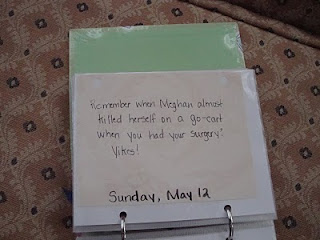 Remember when Meghan almost
killed herself on a go-cart
when you had your surgery?
Yikes!
Sunday, May 12